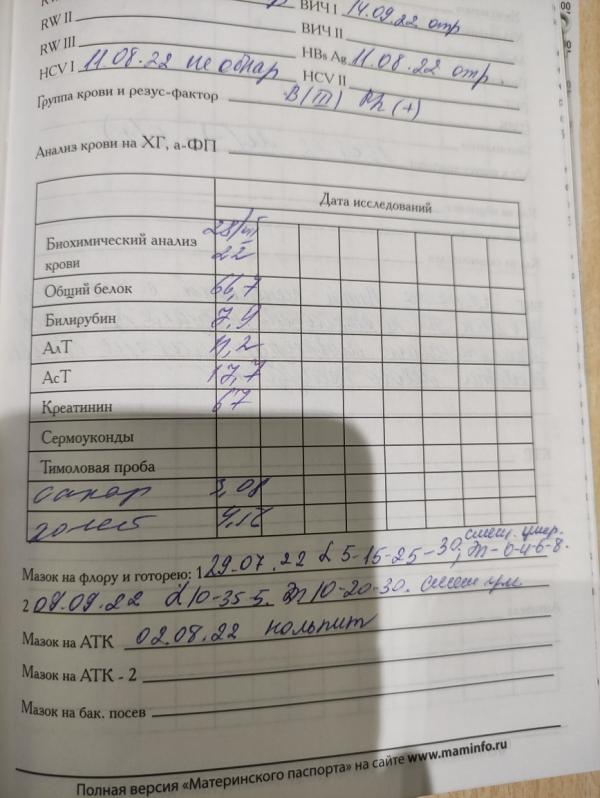 RW II ВИЧ I 14.09.22 отр
RW III ВИЧ II
HCV I 11.08.22 не обнар HBs Ag 11.08.22 отр.
HCV II
Группа крови и резус-фактор B(III) Rh(+)
Анализ крови на ХГ, а-ФП
Дата исследований
Биохимический анализ крови 28/VII 22
Общий белок 66,7
Билирубин 7,9
АлТ 11,2
АсТ 17,7
Креатинин 67
Сермоуконды
Тимоловая проба
сахар 3,08
холест
Мазок на флору и готорею: 1 29.07.22 L 5-15-25-30, Эп-0-4-6-8. смеш. умер.
2 09.09.22 L 10-35-5. Эп 10-20-30. смеш ум
Мазок на АТК 02.08.22 кольпит
Мазок на АТК - 2
Мазок на бак. посев
Полная версия «Материнского паспорта» на сайте www.maminfo.ru